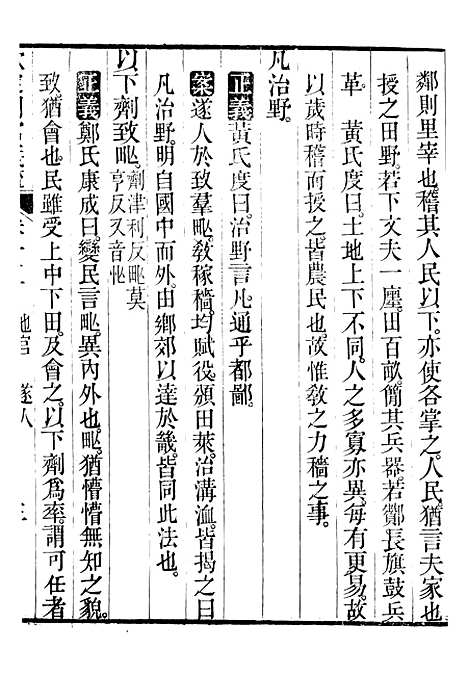 鄰則里宰也。稽其人民以下。亦使各掌之。人民。猶言夫家也
授之田野。若下文夫一廛。田百畝。簡其兵器。若酇長旗鼓兵
革。 黃氏度曰。土地上下不同。人之多寡亦異。每有更易。故
以歲時稽而授之。皆農民也。故惟敎之力穡之事。
凡治野。
正義黃氏度曰。治野言凡。通乎都鄙。
案遂人於致羣甿。敎稼穡。均賦役。頒田萊。治溝洫。皆揭之曰
凡治野。明自國中而外。由鄉郊以達於畿。皆同此法也。
以下劑致甿。劑津利反甿莫
亨反又音
正義鄭氏康成曰。變民言甿。異內外也。甿。猶懵懵無知之貌。
致猶會也。民雖受上中下田。及會之。以下劑爲率。謂可任者
地官 遂人